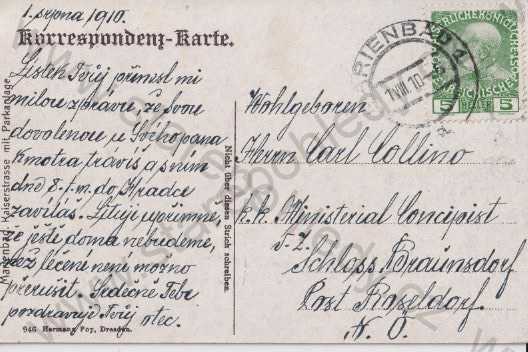 1. srpna 1910.
Korrespondenz-Karte.
Lístek Tvůj přinesl mi
milou zprávu, že svou
dovolenou u Sv. Chopana
Kmotra trávíš a s ním
dne 8. t. m. do Hradce
zavítáš. Lituji upřímně,
že ještě doma nebudeme,
než léčení není možno
přerušit. Srdečně Tebe
pozdravuje Tvůj
otec.
946 Hermann Poy, Dresden.
Marienbad. Kaiserstrasse mit Parkanlage
Nicht über diesen Strich schreiben.
MARIENBAD 1
1 VIII 10
5 5
Wohlgeboren
Herrn Carl Collino
k. k. Ministerial Concipist
d. Z.
Schloss Braunsdorf
Post Roseldorf
N. Ö.